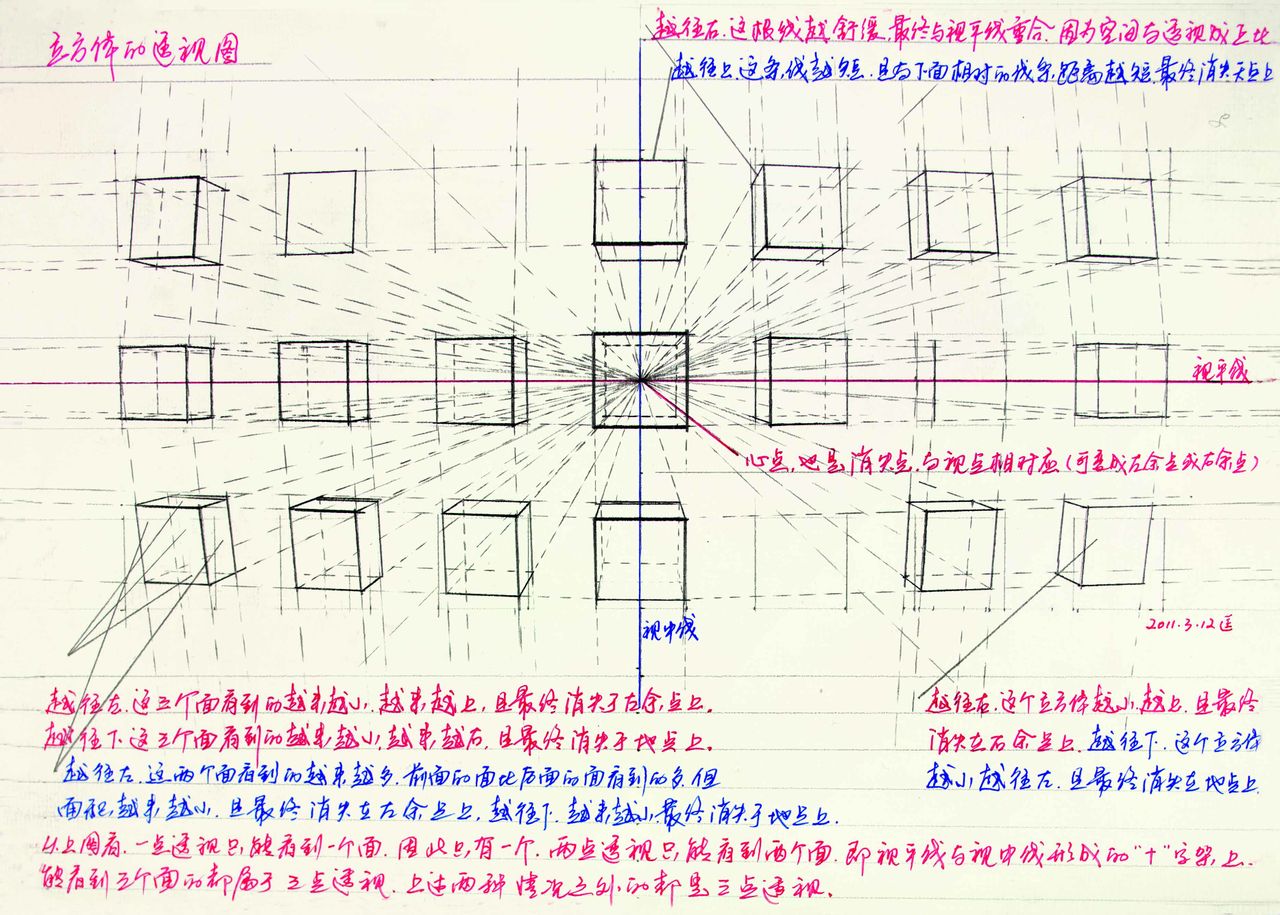 立方体的透视图
越往右.这根线越舒缓.最终与视平线重合.因为空间与透视成正比
越往上.这条线越短.且与下面相对的线条,距离越短.最终消失天点上
视平线
心点,也是消失点,与视点相对应(可变成左余点或右余点)
视中线
2011.3.12
越往左.这三个面看到的越来越小.越来越上,且最终消失于左余点上.
越往下.这三个面看到的越来越小,越来越右.且最终消失于地点上.
越往左.这两个面看到的越来越多.前面的面比后面的面看到的多.但
面积越来越小.且最终消失在左余点上,越往下.越来越小,最终消失于地点上.
越往右.这个立方体越小.越上.且最终
消失在右余点上.越往下.这个立方体
越小越往左.且最终消失在地点上
从上图看.一点透视只能看到一个面.因此只有一个.两点透视只能看到两个面.即视平线与视中线形成的"十"字架上.
能看到三个面的都属于三点透视.上述两种情况之外的都是三点透视.